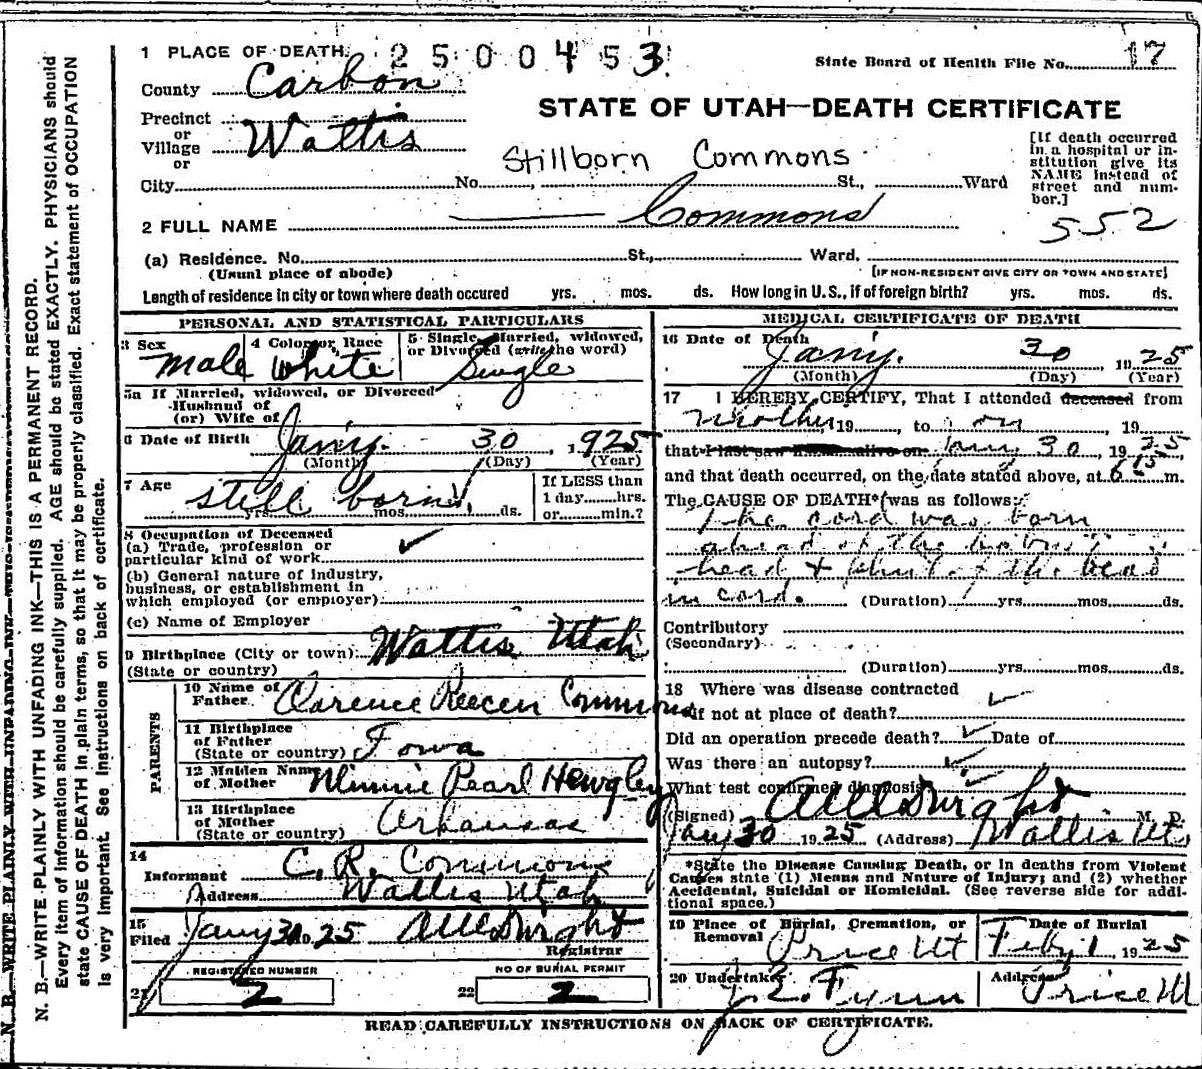 1 PLACE OF DEATH 2500453
State Board of Health File No. 17
County Carbon
STATE OF UTAH—DEATH CERTIFICATE
Precinct
or
Village Wattis
or
[If death occurred
in a hospital or in-
stitution give its
NAME instead of
street and num-
ber.]
Stillborn Commons
City No. St., Ward
552
2 FULL NAME Commons
(a) Residence. No. St., Ward.
(Usual place of abode) [IF NON-RESIDENT GIVE CITY OR TOWN AND STATE]
Length of residence in city or town where death occured yrs. mos. ds. How long in U.S., if of foreign birth? yrs. mos. ds.
PERSONAL AND STATISTICAL PARTICULARS
3 Sex Male
4 Color or Race White
5 Single, Married, widowed,
or Divorced (write the word) Single
5a If Married, widowed, or Divorced
Husband of
(or) Wife of
6 Date of Birth Jan'y. 30 1925
(Month) (Day) (Year)
7 Age still born
yrs. mos. ds.
If LESS than
1 day hrs.
or min.?
8 Occupation of Deceased
(a) Trade, profession or
particular kind of work
(b) General nature of Industry,
business, or establishment in
which employed (or employer)
(c) Name of Employer
9 Birthplace (City or town) Wattis Utah
(State or country)
PARENTS
10 Name of
Father Clarence Reecen Commons
11 Birthplace
of Father
(State or country) Iowa
12 Maiden Name
of Mother Minnie Pearl Hewgley
13 Birthplace
of Mother
(State or country) Arkansas
14
Informant C. R. Commons
Address Wattis Utah
15
Filed Jany 30 1925
Registrar
REGISTERED NUMBER
21 2
NO OF BURIAL PERMIT
22 2
MEDICAL CERTIFICATE OF DEATH
16 Date of Death Jan'y. 30 1925
(Month) (Day) (Year)
17 I HEREBY CERTIFY, That I attended deceased from
Mother 19 to on 19
that I last saw alive on Jany 30, 1925
and that death occurred, on the date stated above, at 6 m.
The CAUSE OF DEATH* was as follows:
The cord was born
ahead of the
head + the head
in cord. (Duration) yrs. mos. ds.
Contributory
(Secondary)
(Duration) yrs. mos. ds.
18 Where was disease contracted
if not at place of death?
Did an operation precede death? Date of
Was there an autopsy?
What test confirmed diagnosis
(Signed) M. D.
Jany 30 1925 (Address) Wattis Ut
*State the Disease Causing Death, or in deaths from Violent
Causes state (1) Means and Nature of Injury; and (2) whether
Accidental, Suicidal or Homicidal. (See reverse side for addi-
tional space.)
19 Place of Burial, Cremation, or
Removal Price Ut
Date of Burial
Feby 1 1925
20 Undertaker
Address Price Ut
READ CAREFULLY INSTRUCTIONS ON BACK OF CERTIFICATE.
N. B.—WRITE PLAINLY WITH UNFADING INK—THIS IS A PERMANENT RECORD.
Every item of information should be carefully supplied. AGE should be stated EXACTLY. PHYSICIANS should
state CAUSE OF DEATH in plain terms, so that it may be properly classified. Exact statement of OCCUPATION
is very important. See instructions on back of certificate.